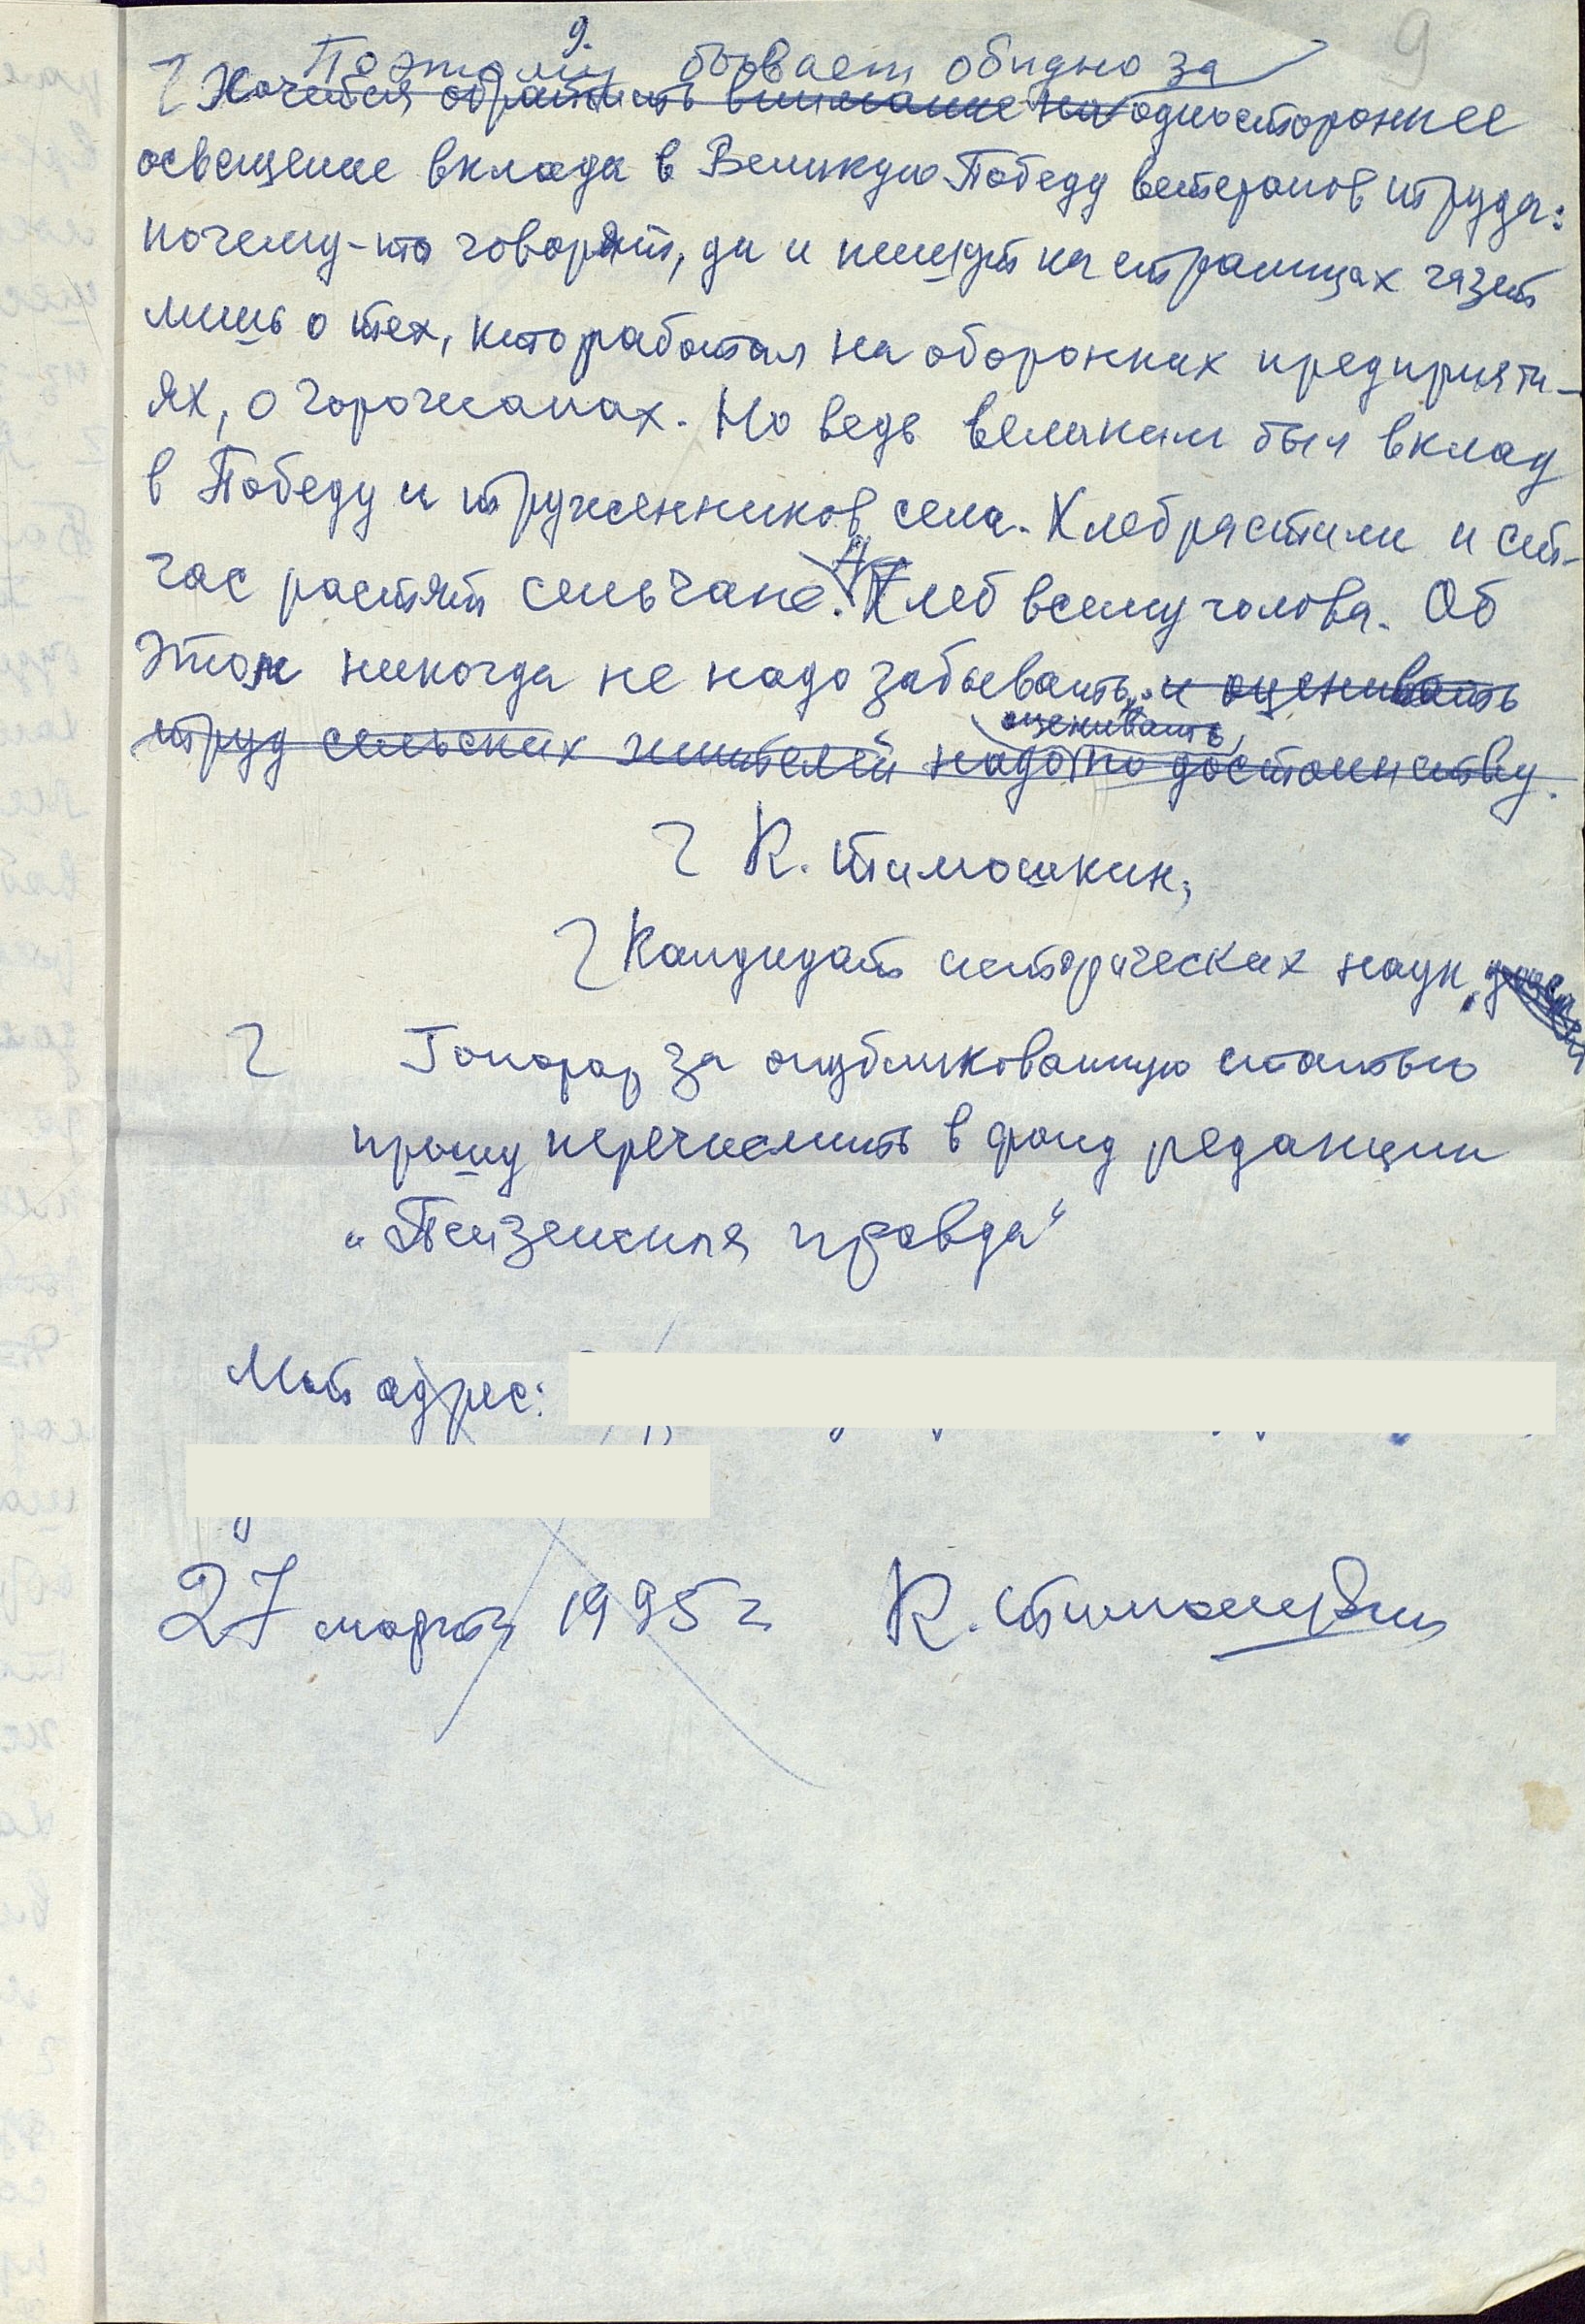 9.
9
Поэтому бывает обидно за
Хочется обратить внимание на одностороннее
освещение вклада в Великую Победу ветеранов труда:
почему-то говорят, да и пишут на страницах газет
лишь о тех, кто работал на оборонных предприяти-
ях, о горожанах. Но ведь великим был вклад
в Победу и труженников села. Хлеб растили и сей-
час растят сельчане. А Хлеб всему голова. Об
этом никогда не надо забывать и оценивать
оценивать
труд сельских жителей надо по достоинству.
К. Тимошкин,
Кандидат исторических наук,
Гонорар за опубликованную статью
прошу перечислить в фонд редакции
"Пензенская правда"
Мой адрес:
27 марта 1995 г К. Тимошкин